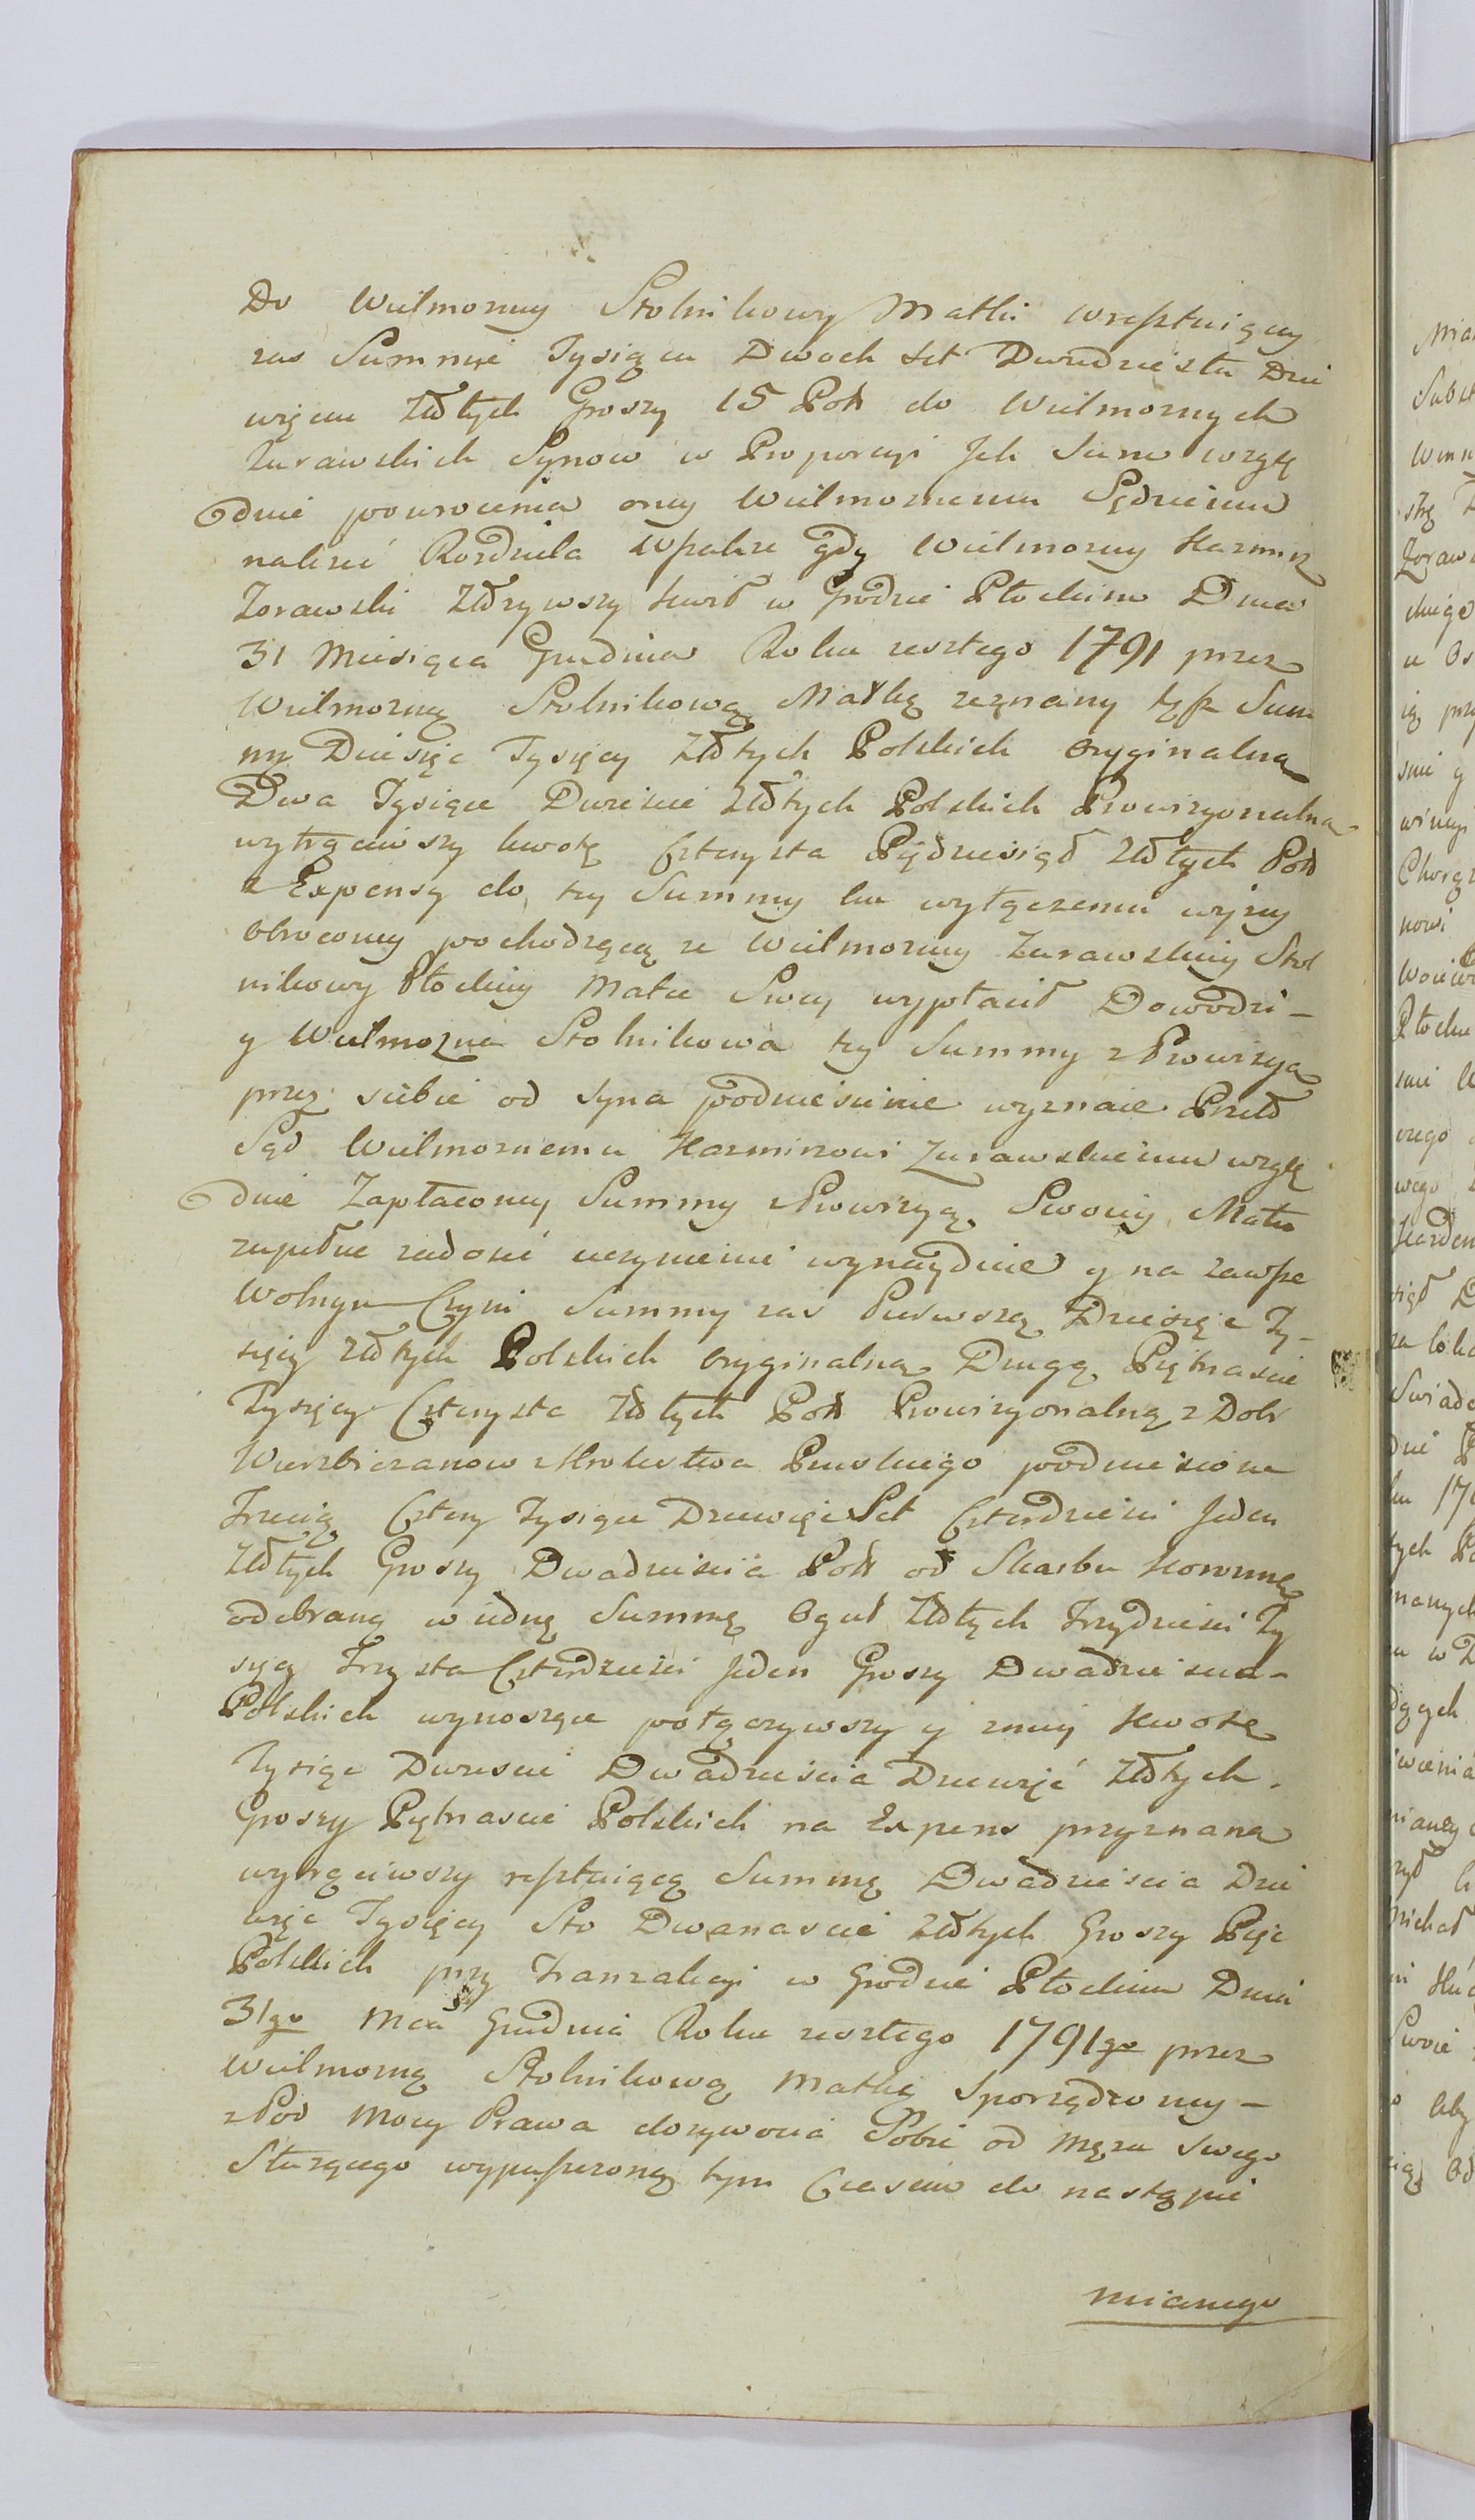 Do Wielmozney Stolnikowy Matki wresztuiący
zas Summie Tysiąca Dwoch set Dwudziestu Dzie
więciu Złtych Groszy 15 Pols do Wielmoznych
Zurawskich Synow w Proporcyi Jch Summ wzglę
dnie powrocenia oney Wielmoznemu Sędziemu
należeć Rozdziela wszakże gdy Wielmozny Kazmirz
Zorawski Złożywszy kwit w Grodzie Płockim Dnia
31 Miesiąca Grudnia Roku zeszłego 1791 przez
Wielmozną Stolnikową Matkę zeznany tęż Sum
mę Dziesięc Tysięcy Złtych Polskich oryginalną
Dwa Tysiące Dwieście Złtych Polskich Prowizyonalną
wytrąciwszy kwotę Czterysta Piędziesiąd Złtych Pols
z Expensy do tey Summy ku wyłączeniu wyżey
obroconey pochodzącą ze Wielmozney Zurawskiey Stol
nikowy Płockiey Matce Swey wypłacił Dowodzi –
y Wielmozna Stolnikowa tey Summy z Prowizyą
przez siebie od Syna podniesienie wyznaie Przeto
Sąd Wielmoznemu Kazmirzowi Zurawskiemu wzglę
dnie Zapłaconey Summy z Prowizyą Swoiey Matce
zupełne zadosić uczynienie wynayduie y na zawsze
Wolnym Czyni Summy zas Pierwszą Dziesięc Ty-
sięcy Złtych Polskich oryginalną Drugą Piętnascie
Tysięcy Czterysta Złtych Pols Prowizyonalną z Dobr
Wierzbiczanow z Krolestwa Pruskiego podniesione
Trzecią Cztery Tysiące Dziewięc Set Czterdziesci Jeden
Złtych Groszy Dwadziescia Pols od Skarbu Koronneg
odebraną w iedną Summę Oguł Złtych Trzydziesci Ty
sięcy Trzysta Czterdziesci Jeden Groszy Dwadziescia –
Polskich wynoszące połączywszy y zniey Kwotę
Tysiąc Dwiescie Dwadziescia Dziewięć Złtych.
Groszy Piętnascie Polskich na Expens przyznaną
wytrąciwszy resztuiącą Summę Dwadziescia Dzie
więc Tysięcy Sto Dwanascie Złtych Groszy Pięc
Polskich przy Tranzakcyi w Grodzie Płockim Dnia
31go Mca Grudnia Roku zeszłego 1791go przez
Wielmozną Stolnikową Matkę Sporządzoney –
z Pod Mocy Prawa dozywocia Sobie od Męza Swego
Służącego wypuszczoną tym Czasem do nastąpić
mianego